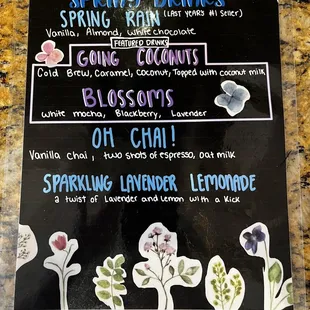 SPRING DRINKS
SPRING RAIN (LAST YEARS #1 Seller)
Vanilla, Almond, white chocolate
FEATURED DRINKS
GOING COCONUTS
Cold Brew, Caramel, Coconut, Topped with coconut milk
BLOSSOMS
White mocha, Blackberry, Lavender
OH CHAI!
Vanilla chai, two shots of espresso, oat milk
SPARKLING LAVENDER LEMONADE
a twist of Lavender and Lemon with a Kick